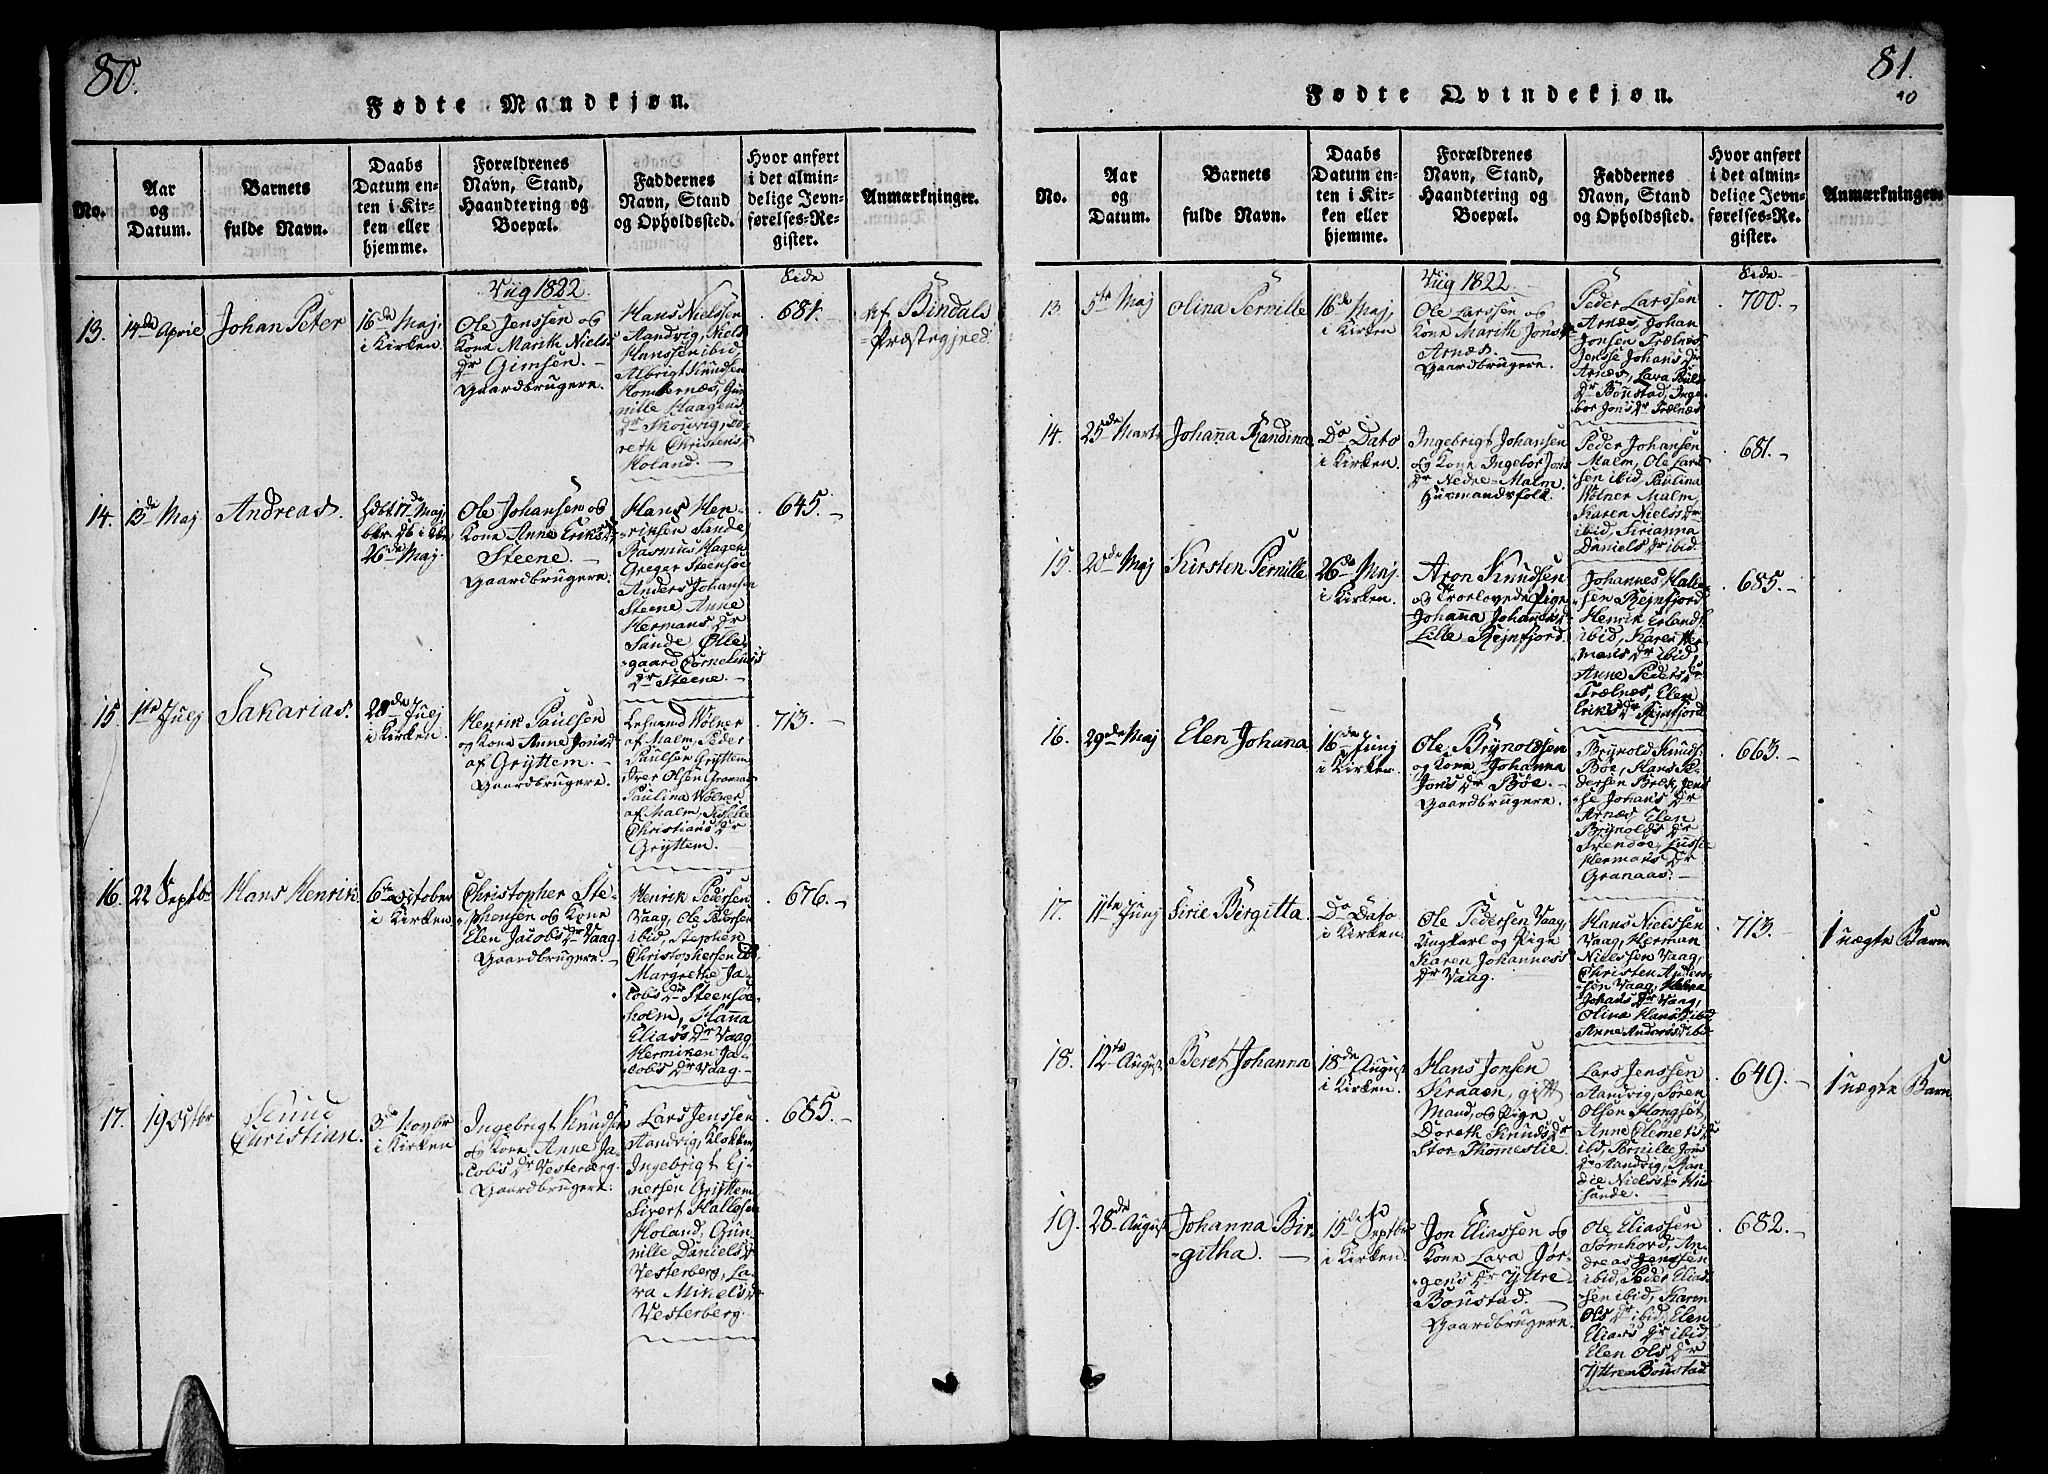 80.
Fødte Mandkjøn.
No.
Aar
og
Datum.
Barnets
fulde Navn.
Daabs
Datum en-
ten i Kir-
ken eller
hjemme.
Forældrenes
Navn, Stand,
Haandtering og
Boepæl.
Faddernes
Navn, Stand
og Opholdssted.
Hvor anført
i det almin-
delige Jevn-
førelses-Re-
gister.
Anmærkninger.
13.
14de April
Johan Peter
16de Maj,
i Kirken.
Viig 1822.
Ole Jenssen og
Kone Marith Niels
Dr Gimsen. -
Gaardbrugere.
Hans Nielssen
Aandvig, Niels
Hanssen ibid,
Albrigt Knudsen
Homternæs, Gun
nille Haagens
Dr Skouvig, Do-
reth Christens
Holand. -
Side
681. -
Bindals
Præstegjeld
14.
13de Maj
Andreas.
26de Maj
Ole Johansen og
Kone Anne Eriks Dr
Steene. -
Gaardbrugere.
Hans Hen-
riksen Sande,
Rasmus Hagen
Greger Steensøe
Anders Johansen
Steene Anne
Hermans Dr
Sande Olle-
gaard Cornelius's
Dr Steene. -
645. -
15.
1te Julj
Sakarias.
28de Julj
i Kirken.
Henrik Paulsen
og Kone Anne Jons Dr
af Gryttem. -
Gaardbrugere.
Wølner
af Malm, Peder
Paulsen Gryttem
Iver Olsen Granaas
Paulina Wølner
af Malm,
Christians Dr
Gryttem. -
713. -
16.
22 Septbr
Hans Henrik
6te October
i Kirken
Christopher Ste-
phensen og Kone
Elen Jacobs Dr Vaag
Gaardbrugere. -
Henrik Pedersen
Vaag, Ole Pedersen
ibid, Stephen
Christophersen ibid,
Margrethe Ja-
cobs Dr Steensøe-
holm, Hanna
Elias's Dr Vaag,
Hermiken Ja-
cobs Dr Vaag -
676. -
17.
19 Octbr
Knud
Christian.
3de Novbr
i Kirken
Ingebrigt Knudsen
og Kone Anne Ja-
cobs Dr Vesterberg.
Gaardbrugere.
Lars Jenssen
Aandvig, Klokker,
Ingebrigt Ej-
nersen Gryttem,
Sivert Hallesen
Holand, Gun-
nille Daniels Dr
Vesterberg, La-
ra Mikels Dr
Vesterberg.
685. -
81.
Fødte Qvindekjøn.
No.
Aar
og
Datum.
Barnets
fulde Navn.
Daabs
Datum en-
ten i Kir-
ken eller
hjemme.
Forældrenes
Navn, Stand,
Haandtering og
Boepæl.
Faddernes
Navn, Stand
og Opholdssted.
Hvor anført
i det almin-
delige Jevn-
førelses-Re-
gister.
Anmærkninger.
13.
5te Maj
Olina Pernille
16de Maj,
i Kirken.
Viig 1822.
Ole Larssen og
Kone Marith Jons Dr
Arnæs.
Gaardbrugere.
Peder Larssen
Arnæs, Johan
Jonsen Trælnæs
Jensse Johans Dr
Arnæs, Lara Pauls
Dr Boustad, Inge-
bor Jons Dr Trælnæs
Side
700. -
14.
25de Marts
Johanna Randina
Do Dato
i Kirken.
Ingebrigt Johansen
og Kone Ingebor Jons
Dr Nedre-Malm.
Huusmandsfolk.
Peder Johansen
Malm, Ole Lars-
sen ibid Paulina
Wølner Malm,
Karen Niels Dr
ibid, Sirianna
Daniels Dr ibid.
681. -
15.
20de Maj
Kirsten Pernille
26de Maj.
i Kirken.
Aron Knudsen
og Troelovede Pige
Johanna Johannes D
Lille Rejnsfjord.
Johannes Halle-
sen Rejnsfjord
Henrik Erlands.
ibid, Karen Her-
mans Dr ibid,
Anne Peders Dr
Trælnæs, Elen
Eriks Dr Rejnsfjord
685. -
16.
29de Maj
Elen Johana
16de Junj
i Kirken.
Ole Brynoldsen
og Kone Johanna
Jons Dr Bøe. -
Gaardbrugere.
Brynold Knuds.
Bøe, Hans Pe-
dersen Bræk, Jens-
se Johans Dr
Arnæs, Elen
Brynolds Dr
Svendøe, Lusse
Hermans Dr
Granaas. -
663. -
17.
11te Junj
Sirie Birgitta
Do Dato
i Kirken.
Ole Pedersen Vaag,
Ungkarl og Pige
Karen Johannes's
Dr Vaag.
Hans Nielssen
Vaag, Herman
Nielssen Vaag,
Christen Anders-
sen Vaag,
Johans Dr Vaag,
Olina Hans D ibid
Anne Anders D ibid
713. -
1 uægte Barn
18.
12te August
Beret Johanna
18de August
i Kirken.
Hans Jonsen
gift
Mand, og Pige
Doreth Knuds Dr
Lars Jenssen
Aandvig, Søren
Olsen Hongset
Anne Clemets D
ibid, Pernille Jons
Dr Aandvig, Ran-
die Niels Dr Hus-
sande. -
649. -
1 uægte Barn
19.
28de August
Johanna Bir-
githa. -
15de Septbr
i Kirken.
Jon Eliassen og
Kone Lara Jør-
gens Dr Yttre
Boustad. -
Gaardbrugere.
Ole Eliassen
Sømhord, An-
dreas Jenssen
ibid, Peder Elias-
sen ibid, Karen
Ols Dr ibid, Elen
Elias's Dr ibid,
Elen Ols Dr
Yttre Boustad
682. -